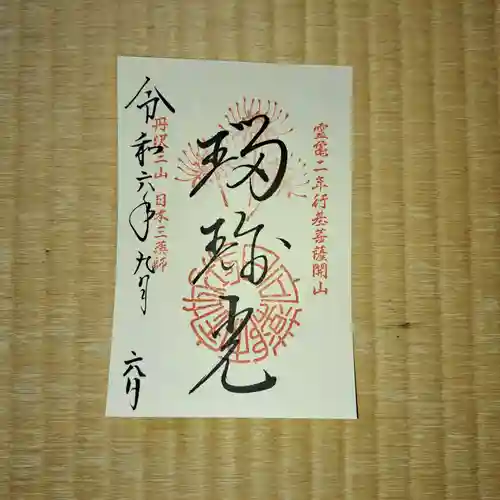 霊亀二年行基菩薩開山
瑠璃光
日本三薬師
令和六年九月
六日